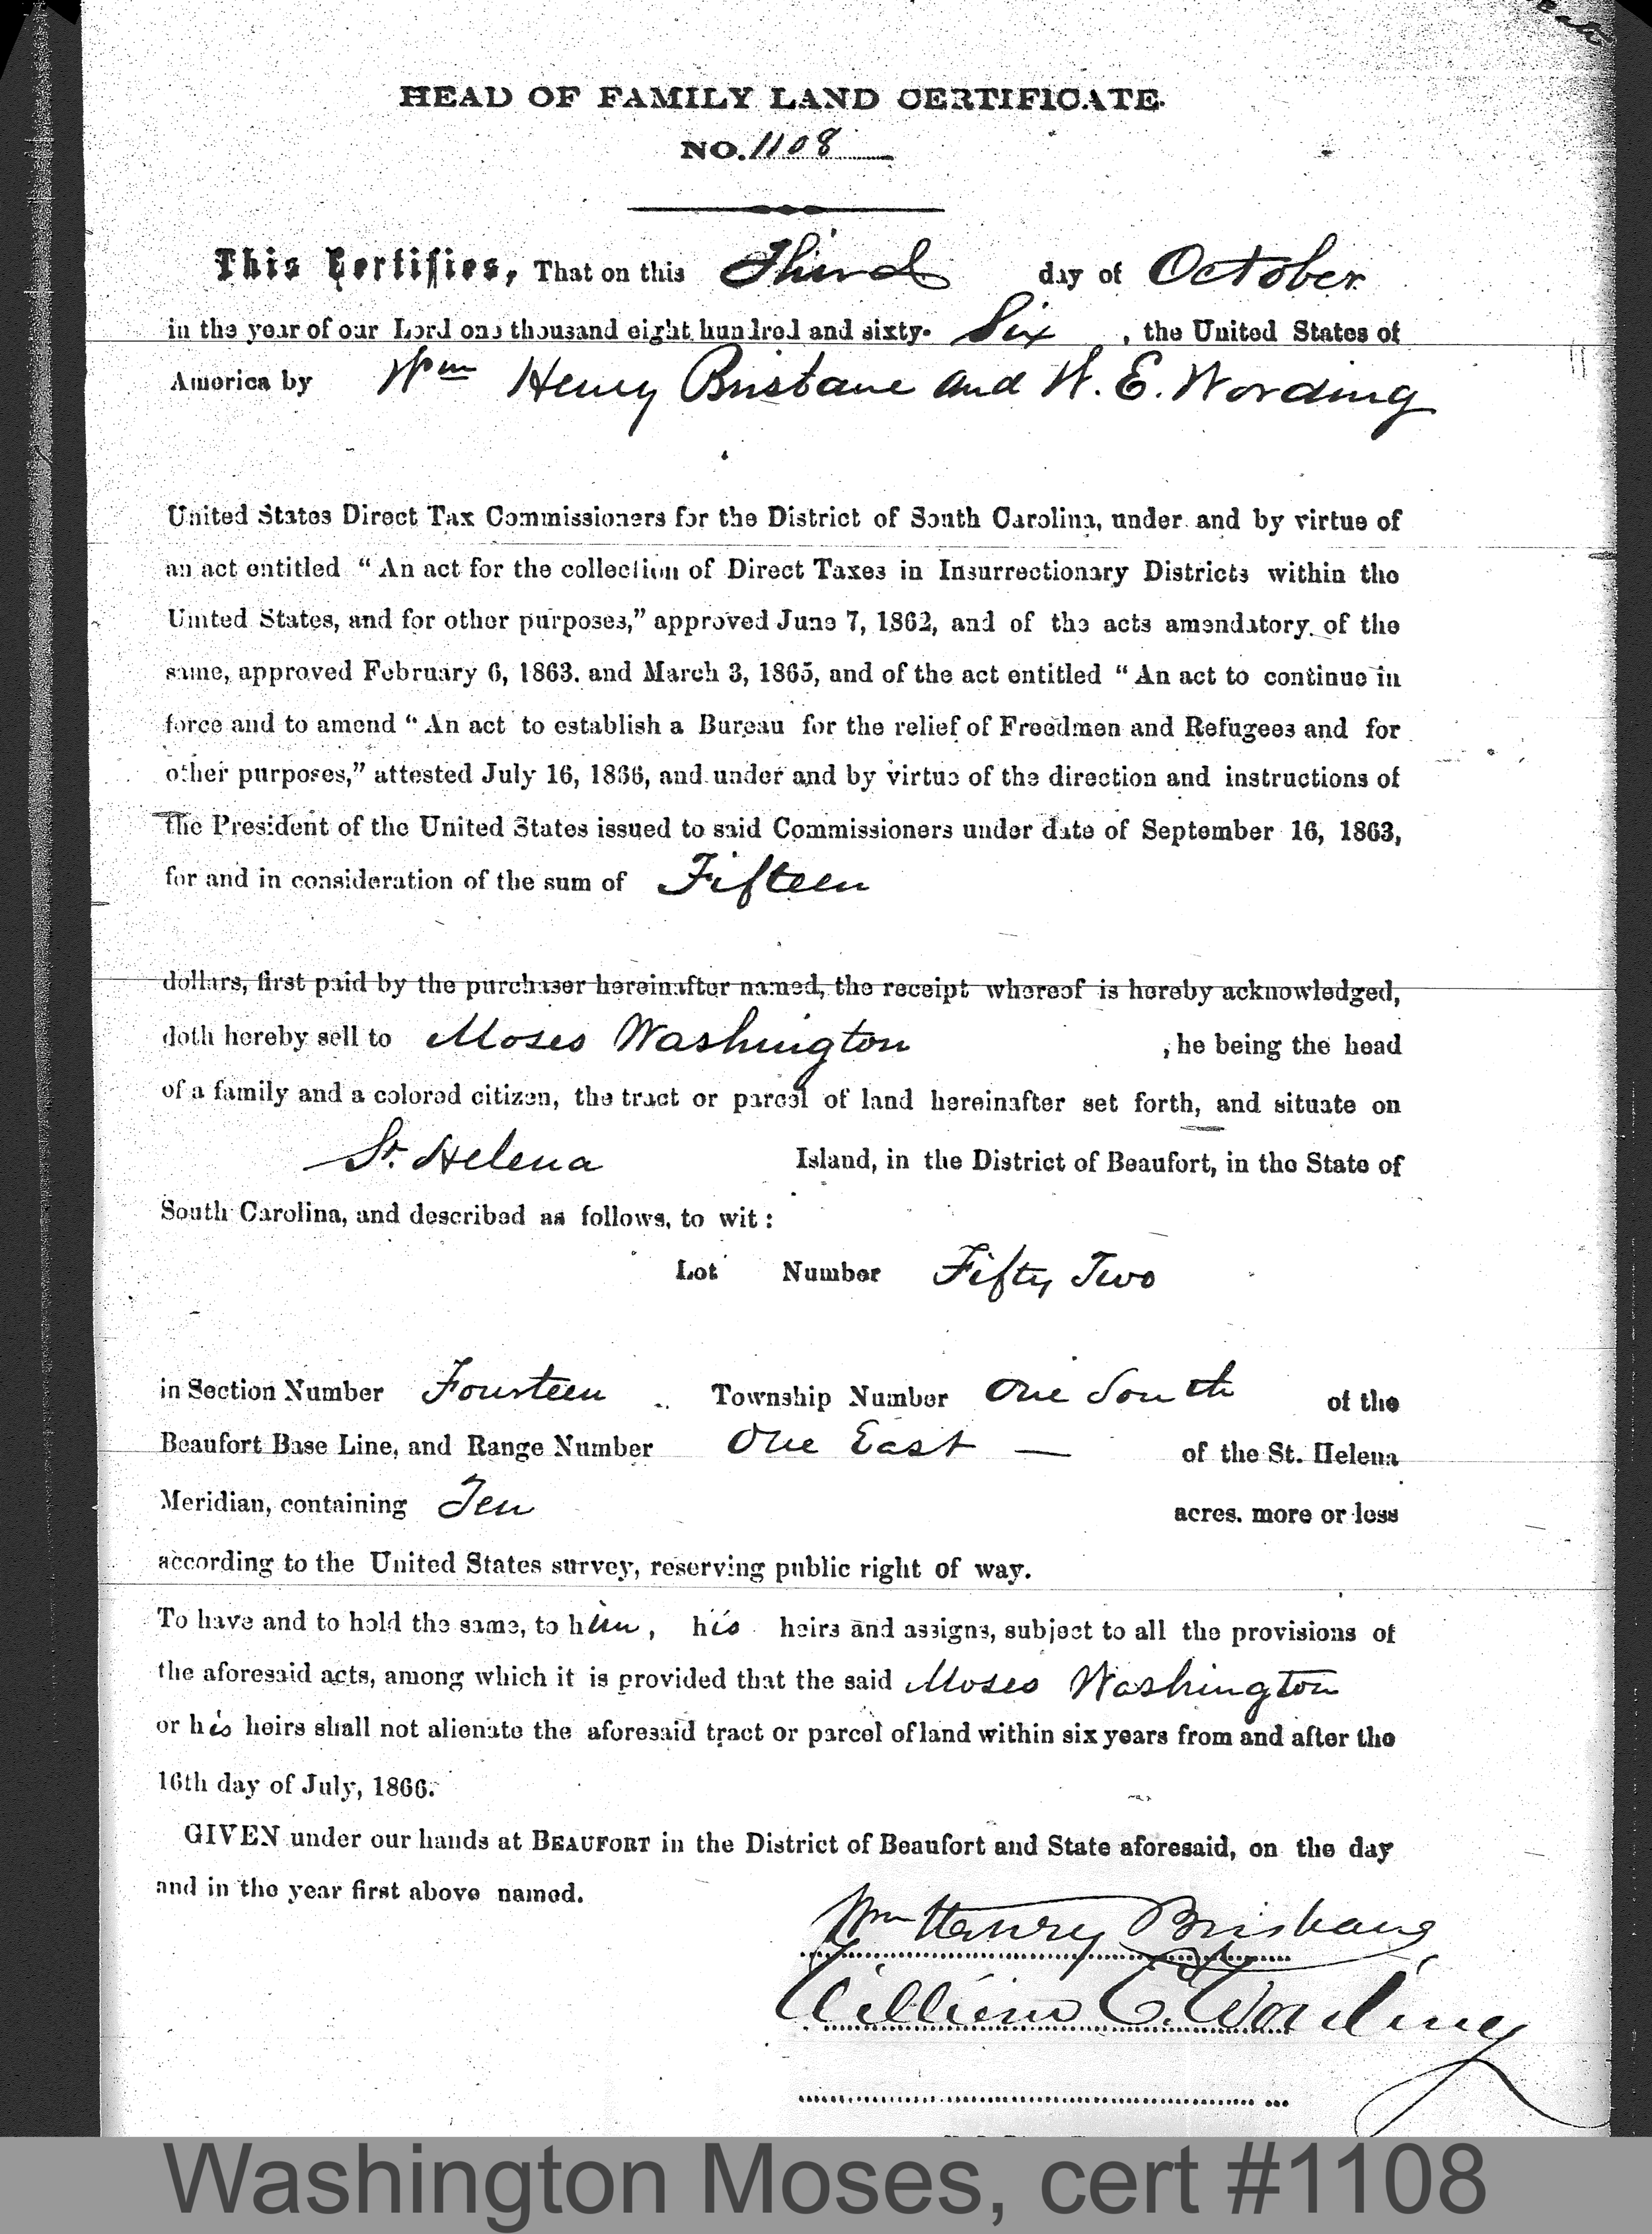 HEAD OF FAMILY LAND CERTIFICATE.
NO. 1108
This Certifies, That on this Third day of October
in the year of our Lord one thousand eight hundred and sixty- Six , the United States of
America by Wm Henry Brisbane and W. E. Wording
United States Direct Tax Commissioners for the District of South Carolina, under and by virtue of
an act entitled “An act for the collection of Direct Taxes in Insurrectionary Districts within the
United States, and for other purposes,” approved June 7, 1862, and of the acts amendatory of the
same, approved February 6, 1863. and March 3, 1865, and of the act entitled “An act to continue in
force and to amend “An act to establish a Bureau for the relief of Freedmen and Refugees and for
other purposes,” attested July 16, 1866, and under and by virtue of the direction and instructions of
the President of the United States issued to said Commissioners under date of September 16, 1863,
for and in consideration of the sum of Fifteen
dollars, first paid by the purchaser hereinafter named, the receipt whereof is hereby acknowledged,
doth hereby sell to Moses Washington , he being the head
of a family and a colored citizen, the tract or parcel of land hereinafter set forth, and situate on
St. Helena Island, in the District of Beaufort, in the State of
South Carolina, and described as follows, to wit:
Lot Number Fifty Two
in Section Number Fourteen Township Number One South of the
Beaufort Base Line, and Range Number One East — of the St. Helena
Meridian, containing Ten acres. more or less
according to the United States survey, reserving public right of way.
To have and to hold the same, to him, his heirs and assigns, subject to all the provisions of
the aforesaid acts, among which it is provided that the said Moses Washington
or his heirs shall not alienate the aforesaid tract or parcel of land within six years from and after the
16th day of July, 1866.
GIVEN under our hands at BEAUFORT in the District of Beaufort and State aforesaid, on the day
and in the year first above named.
Wm Henry Brisbane
William E. Wording
Washington Moses, cert #1108